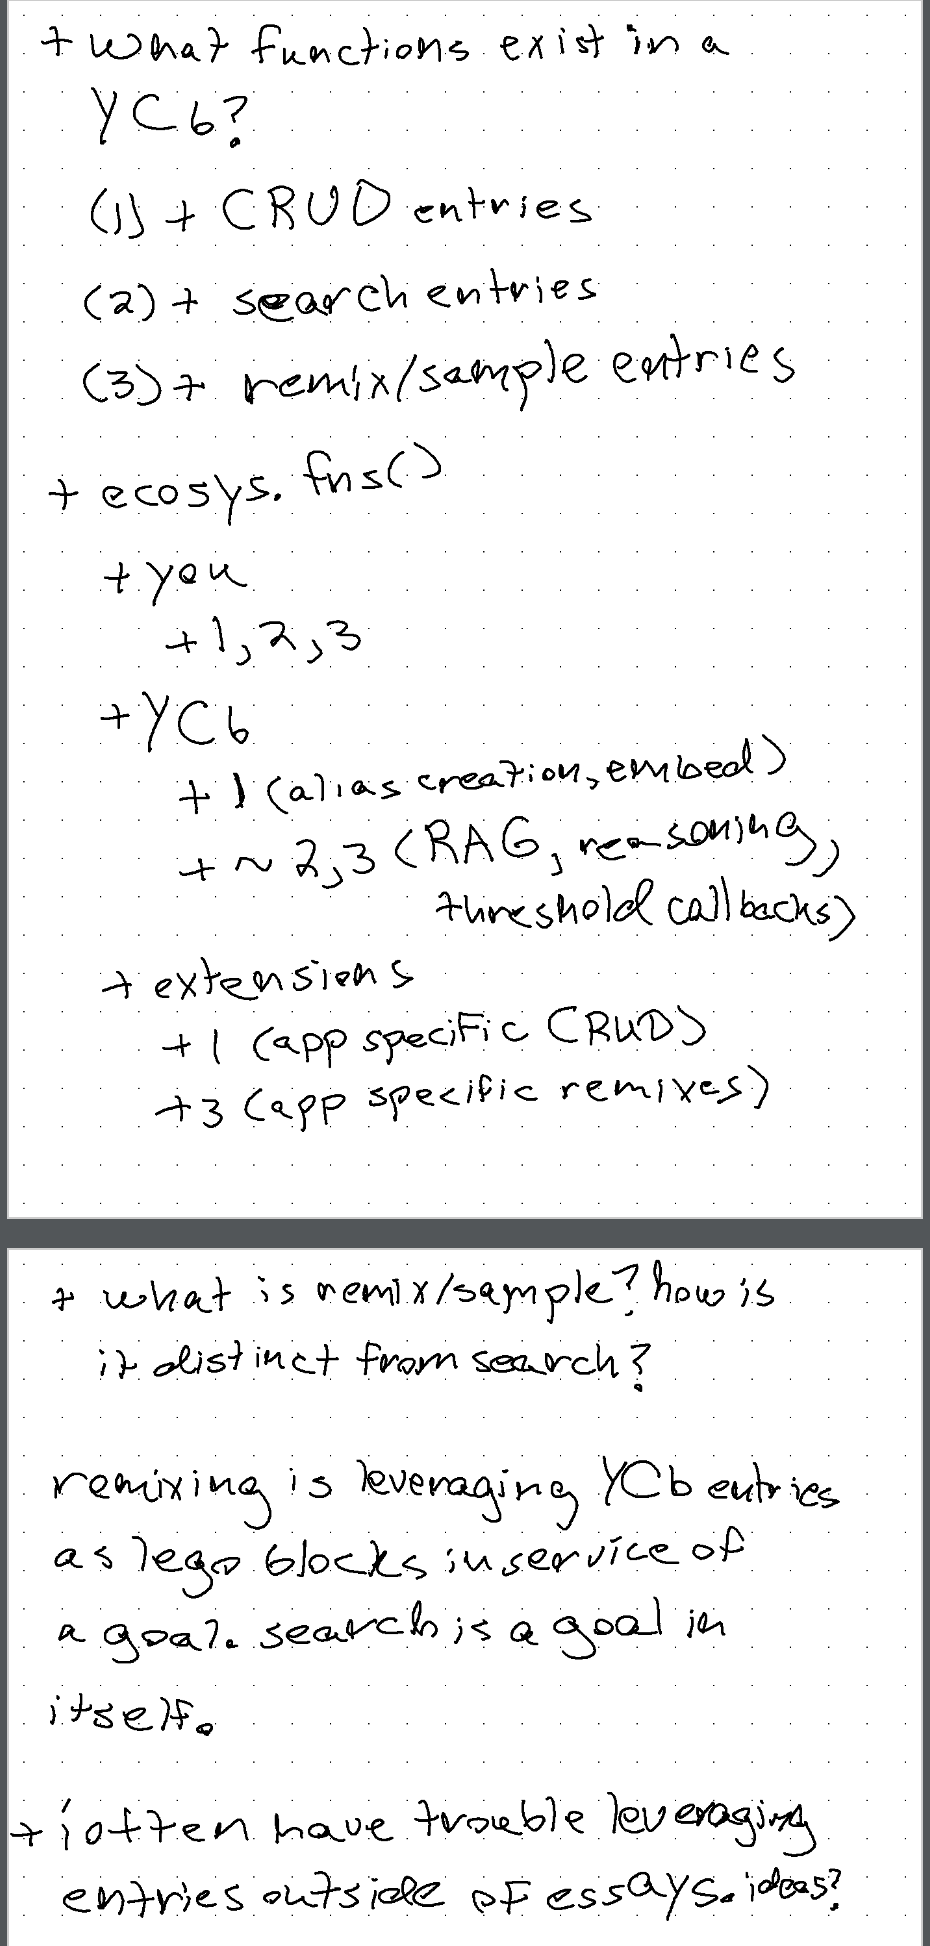 + what functions exist in a
YCb?
(1) + CRUD entries
(2) + search entries
(3) + remix/sample entries
+ ecosys. fns()
+ you
+ 1, 2, 3
+ YCb
+ 1 (alias creation, embed)
+ ~ 2, 3 (RAG, reasoning,
threshold callbacks)
+ extensions
+ 1 (app specific CRUD)
+ 3 (app specific remixes)
+ what is remix/sample? how is
it distinct from search?
remixing is leveraging YCb entries
as lego blocks in service of
a goal. search is a goal in
itself.
+ i often have trouble leveraging
entries outside of essays. ideas?